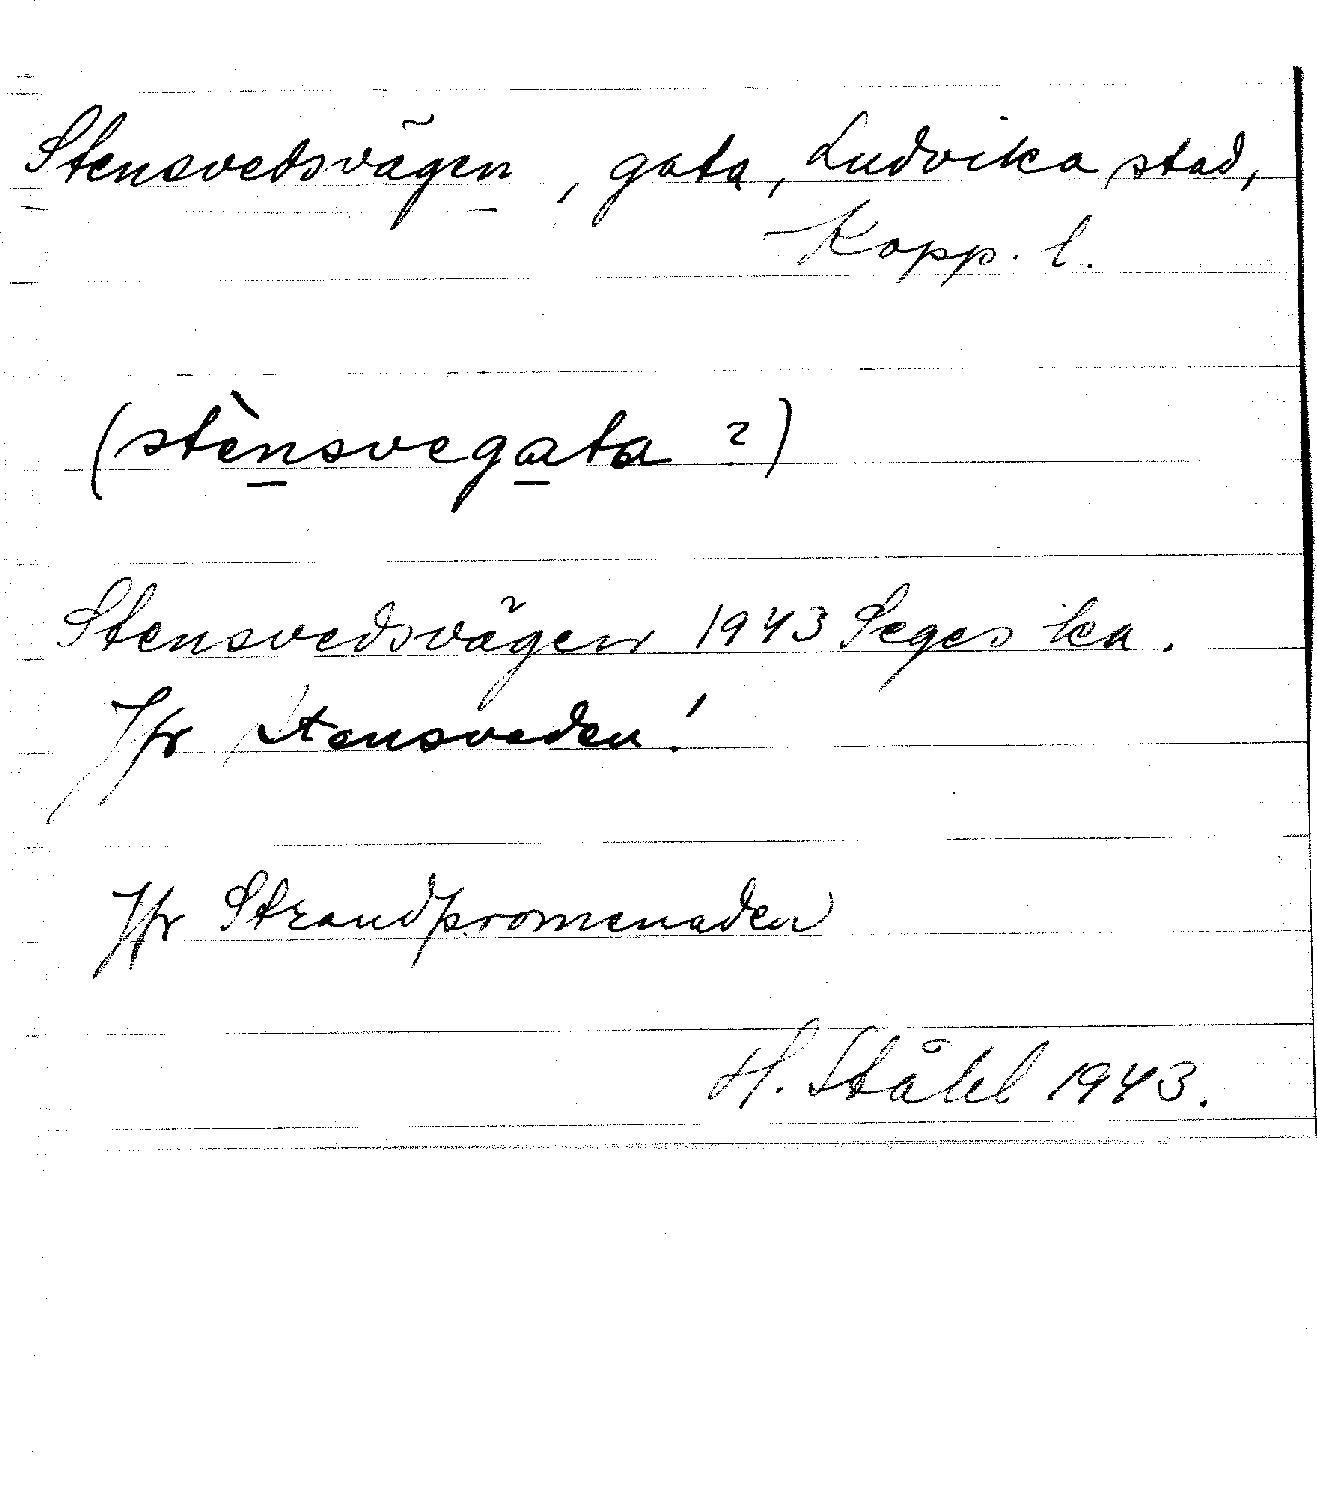 Stensvedsvägen, gata, Ludvika stad,
Kopp. l.
(stènsvegata ?)
Stensvedsvägen 1943 Seges ka.
Jfr Stensveden!
Jfr Strandpromenaden
H. Ståhl 1943.